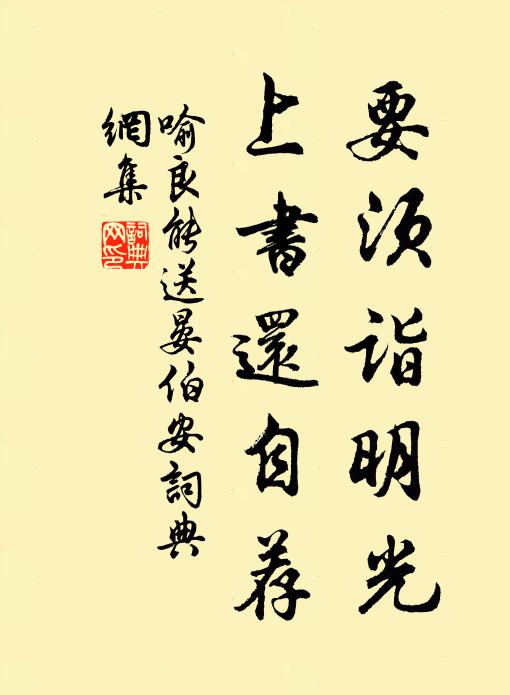 要須詣明光
上書還自荐
喻良能送晏伯安詞典
網集
詞典
网印